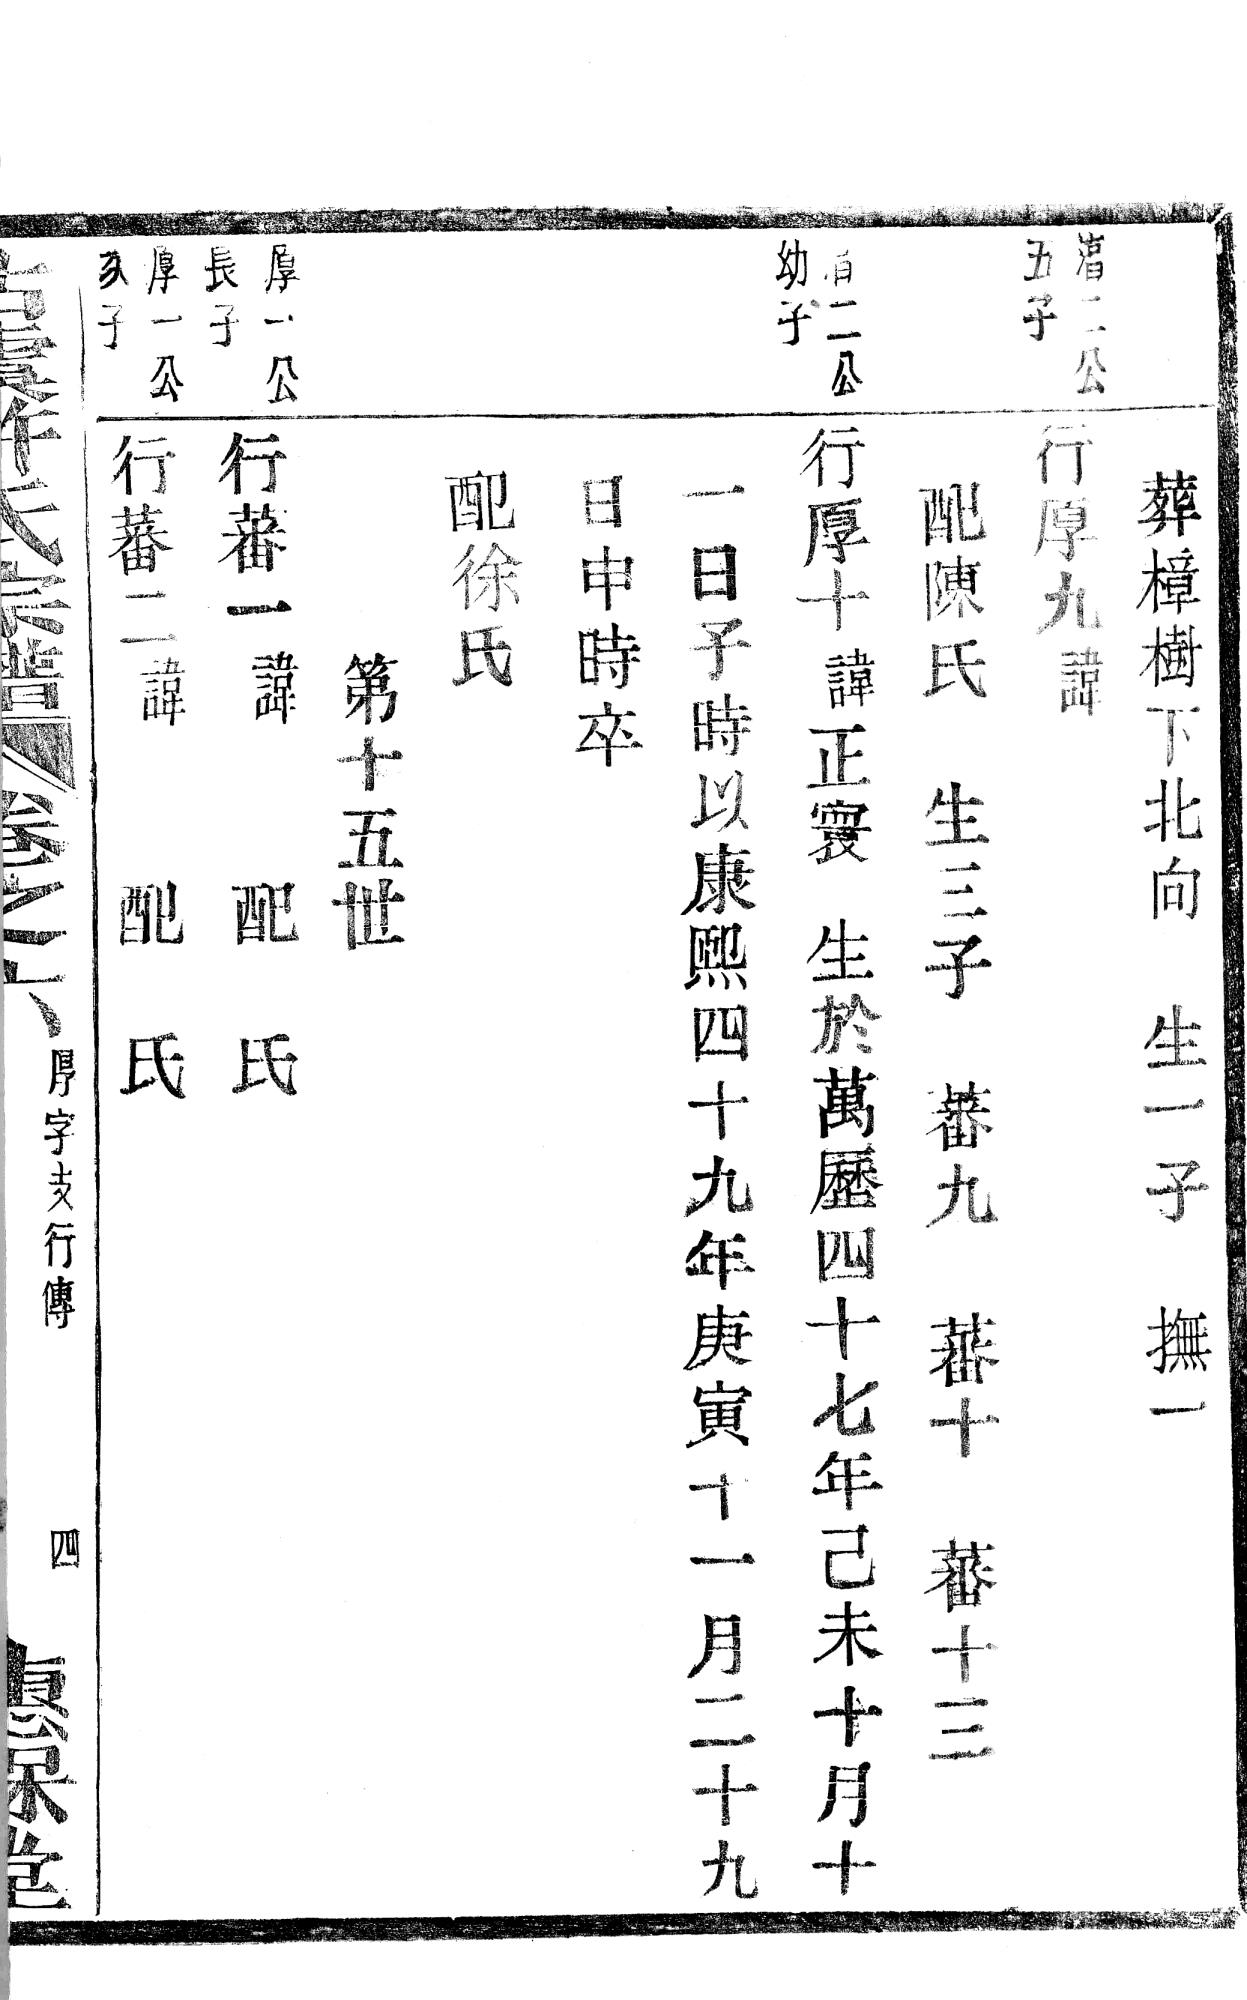 葬樟樹下北向　生一子　撫一
二公
五子
行厚九諱
配陳氏　生三子　蕃九　蕃十　蕃十三
二公
幼子
行厚十諱正寰　生於萬歷四十七年己未十月十
一日子時以康熙四十九年庚寅十一月二十九
日申時卒
配徐氏
第十五世
厚一公
長子
行蕃一諱　配　氏
厚一公
次子
行蕃二諱　配　氏
氏宗譜
卷之六
厚字支行傳
四
堂